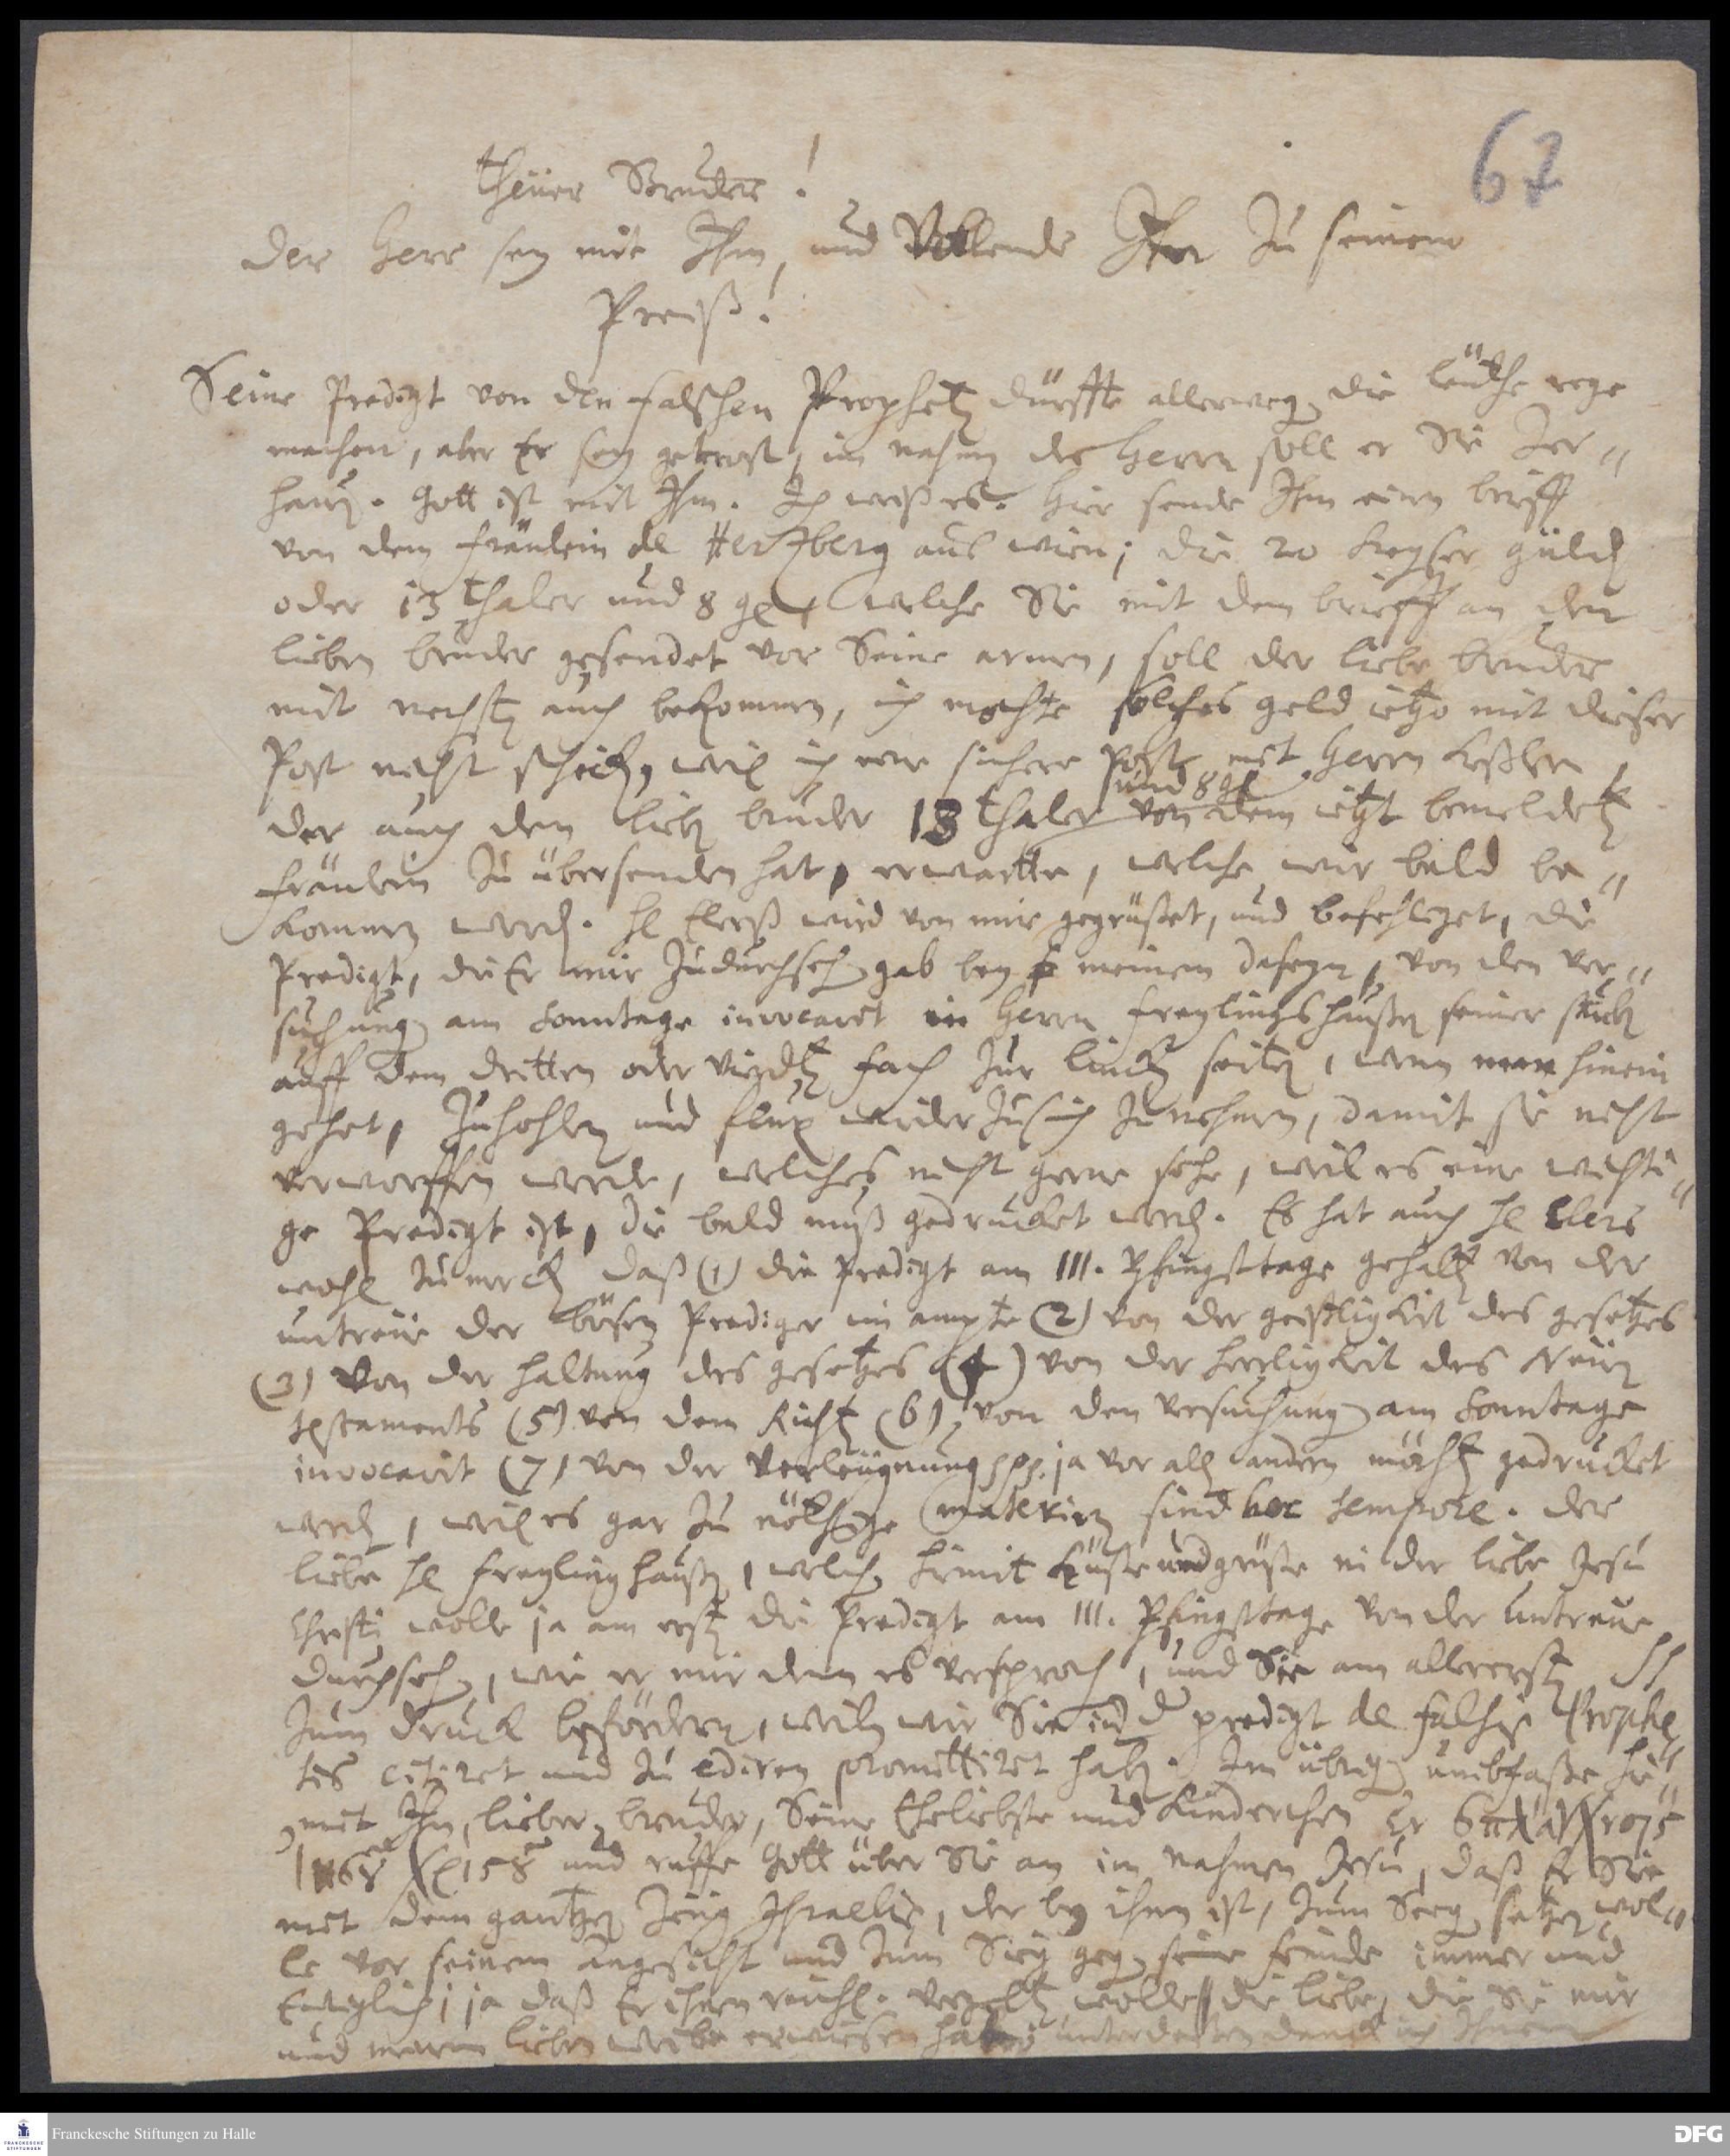 67
theüer Bruder!
der Herr sey mit Ihm, und Vollende Ihn zu seinem
Preiß!
Seine Predigt von den falschen Prophetẽ dürffte allerweg die leüthe rege
machen, aber Er sey getrost, im nahmẽ des Herrn soll er Sie zer„
hauẽ. Gott ist mit Ihm. Ich weiß es. Hier sende Ihm einen brieff
von dem fräulein de Hertzberg aus wien; die 20 Keyser güldẽ
oder 13 thaler und 8 g welche Sie mit dem brieff an den
lieben bruder gesendet vor Seine armen, soll der liebe bruder
mit nechstẽ auch bekommen, ich mochte solches geld ietzo mit dieser
Post nicht schickẽ, weil ich eine sichere Post mit Herrn Keßlern
und 8 g
der auch dem liebẽ bruder 13 thaler von dem ietzt bemeldetẽ
fräulein zu übersenden hat, erwartte, welche wir bald be„
kommen werdẽ. H Elerß wird von mir gegrüßet, und befehliget, die
Predigt, die Er mir zu durchsehẽ gab bey meinem daseyn, von den ver„
suchungẽ am Sonntage invocavit in Herrn freylingshaußen seiner stubẽ
auff dem dritten oder vierdtẽ fach zur linckẽ seitẽ, wenn man hinein
gehet, zu hohlen und flux wieder zu sich zu nehmen, damit sie nicht
verworffen werde, welches nicht gerne sehe, weil es eine wichti„
ge Predigt ist, die bald muß gedrucket werdẽ. Es hat auch H Elers
wohl zu merckẽ daß (1) die Predigt am III. Pfingsttage gehaltẽ von der
untreüe der bösen Prediger im ampte (2) von der geistligkeit des gesetzes
(3) Von der haltung des gesetzes (4) von der herrligkeit des Neüen
testaments (5) von dem (6) von den versuchungẽ am Sonntage
invocavit (7) von der Verleügnung ja vor allẽ andern möchtẽ gedrucket
werdẽ, weil es gar zu nöthige materien sind hoc tempore. der
liebe H freylinghaußẽ, welchẽ hiemit Küße und grüße in der liebe Jesu
Christi wolle ja am erstẽ die Predigt am III. Pfingsttage von der Untreüe
durchsehẽ, wie er mir denn es versprach, und Sie am allererstẽ
zum druck befördern, weiln wir Sie in d predigt de falsis Prophe„
tis citiret und zu ediren promittiret habẽ. Im übrigẽ umbfaße hie„
mit Ihn, lieber bruder, Seine Eheliebste und Kinderchen
und ruffe Gott über Sie an im nahmen Jesu, daß Er Sie
mit dem gantzen Israelis, der bey ihnen ist, zum Seegẽ setzen wol„
le vor seinem angesicht und zum Sieg gegẽ seine feinde immer und
Ewiglich; ja daß Er ihnen reichl. vergeltẽ wolle die liebe, die Sie mir
und meinem lieben weibe erwiesen haben; unterdeßen dancke ich Ihnen
Franckesche Stiftungen zu Halle
DFG